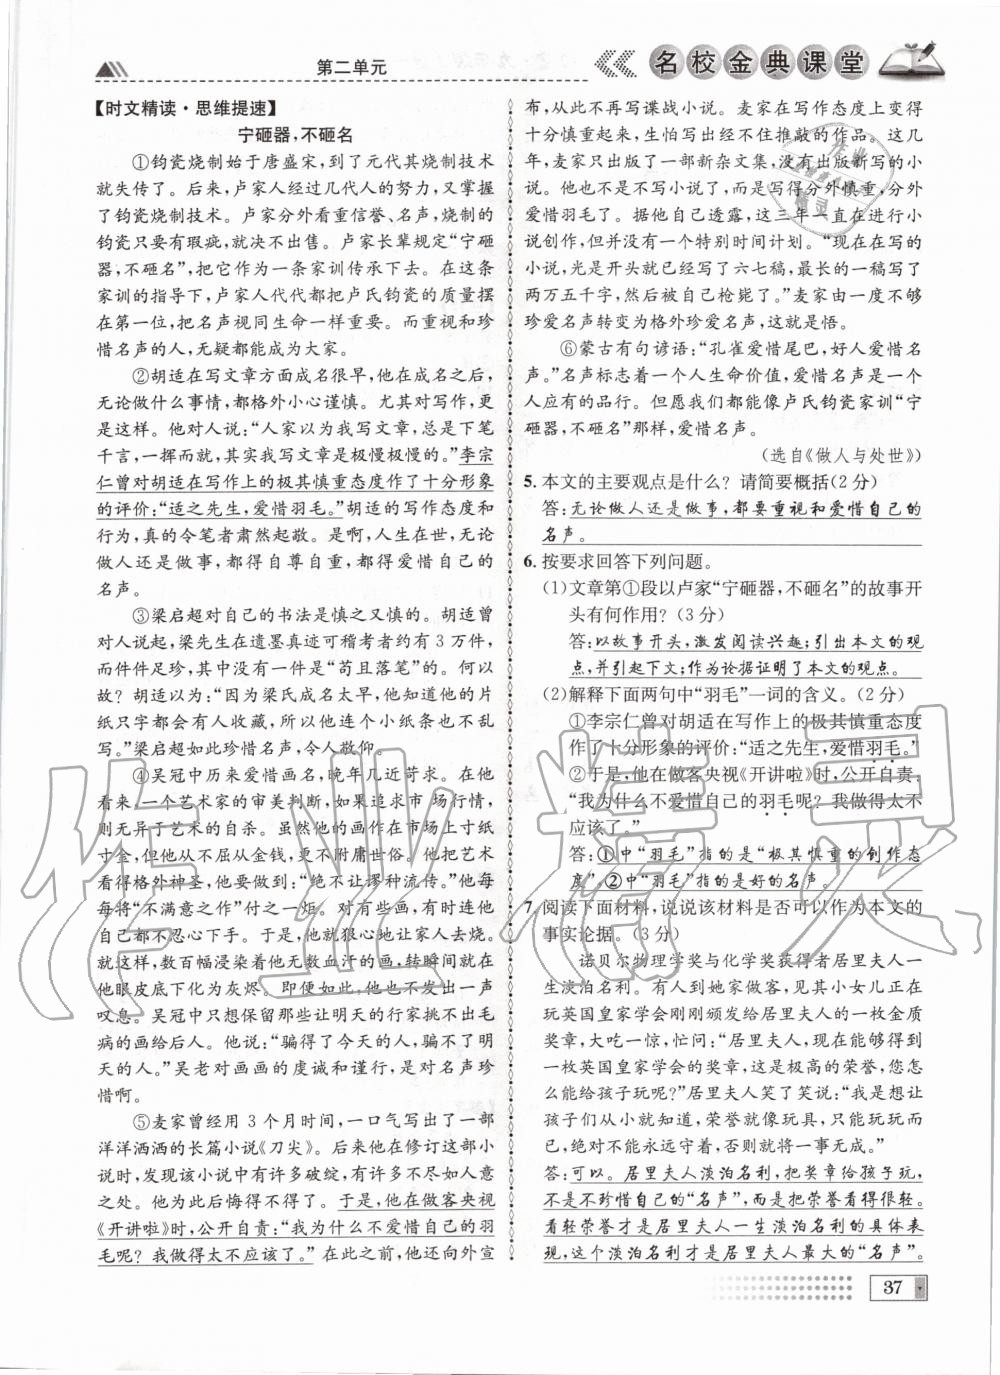 第二单元
名校金典课堂
【时文精读·思维提速】
宁砸器，不砸名
①钧瓷烧制始于唐盛宋，到了元代其烧制技术
就失传了。后来，卢家人经过几代人的努力，又掌握
了钧瓷烧制技术。卢家分外看重信誉、名声，烧制的
钧瓷只要有瑕疵，就决不出售。卢家长辈规定“宁砸
器，不砸名”，把它作为一条家训传承下去。在这条
家训的指导下，卢家人代代都把卢氏钧瓷的质量摆
在第一位，把名声视同生命一样重要。而重视和珍
惜名声的人，无疑都能成为大家。
②胡适在写文章方面成名很早，他在成名之后，
无论做什么事情，都格外小心谨慎。尤其对写作，更
是这样。他对人说：“人家以为我写文章，总是下笔
千言，一挥而就。其实我写文章是极慢极慢的。”李宗
仁曾对胡适在写作上的极其慎重态度作了十分形象
的评价：“适之先生，爱惜羽毛。”胡适的写作态度和
行为，真的令笔者肃然起敬。是啊，人生在世，无论
做人还是做事，都得自尊自重，都得爱惜自己的名
声。
③梁启超对自己的书法是慎之又慎的。胡适曾
对人说起，梁先生在遗墨真迹可稽考者约有 3 万件，
而件件足珍，其中没有一件是“苟且落笔”的。何以
故？胡适以为：“因为梁氏成名太早，他知道他的片
纸只字都会有人收藏，所以他连个小纸条也不乱
写。”梁启超如此珍惜名声，令人敬仰。
④吴冠中历来爱惜画名，晚年几近苛求。在他
看来，一个艺术家的审美判断，如果追求市场行情，
则无异于艺术的自杀。虽然他的画作在市场上寸纸
寸金，但他从不屈从金钱，更不附庸世俗。他把艺术
看得格外神圣，他要做到：“绝不让谬种流传。”他每
每将“不满意之作”付之一炬。对有些画，有时候他
自己都不忍心下手。于是，他就狠心地让家人去烧。
就这样，数百幅浸染他无数血汗的画，转瞬间就在
他眼皮底下化为灰烬。即便如此，他也不发出一声
叹息。吴冠中只想保留那些让明天的行家挑不出毛
病的画给后人。他说：“骗得了今天的人，骗不了明
天的人。”吴老对画画的虔诚和谨行，是对名声珍
惜啊。
⑤麦家曾经用 3 个月时间，一口气写出了一部
洋洋洒洒的长篇小说《刀尖》。后来他在修订这部小
说时，发现该小说中有许多破绽，有许多不尽如人意
之处。他为此后悔得不得了。于是，他在做客央视
《开讲啦》时，公开自责：“我为什么不爱惜自己的羽
毛呢？我做得太不应该了。”在此之前，他还向外宣
布，从此不再写谍战小说。麦家在写作态度上变得
十分慎重起来，生怕写出经不住推敲的作品。这几
年，麦家只出版了一部新杂文集，没有出版新写的小
说。他也不是不写小说了，而是写得分外慎重，分外
爱惜羽毛了。据他自己透露，这三年一直在进行小
说创作，但并没有一个特别时间计划。“现在在写的
小说，光是开头就已经写了六七稿，最长的一稿写了
两万五千字，就这也被自己枪毙了。”麦家由一度不够
珍爱名声转变为格外珍爱名声，这就是悟。
⑥蒙古有句谚语：“孔雀爱惜尾巴，好人爱惜名
声。”名声标志着一个人生命价值，爱惜名声是一个
人应有的品行。但愿我们都能像卢氏钧瓷家训“宁
砸器，不砸名”那样，爱惜名声。
（选自《做人与处世》）
5. 本文的主要观点是什么？请简要概括（2 分）
答：无论做人还是做事，都要重视和爱惜自己的
名声。
6. 按要求回答下列问题。
（1）文章第①段以卢家“宁砸器，不砸名”的故事开
头有何作用？（3 分）
答：以故事开头，激发阅读兴趣；引出本文的观
点，并引起下文；作为论据证明了本文的观点。
（2）解释下面两句中“羽毛”一词的含义。（2 分）
①李宗仁曾对胡适在写作上的极其慎重态度
作了十分形象的评价：“适之先生，爱惜羽毛。”
②于是，他在做客央视《开讲啦》时，公开自责：
“我为什么不爱惜自己的羽毛呢？我做得太不
应该了。”
答：①中“羽毛”指的是“极其慎重的创作态
度”②中“羽毛”指的是好的名声。
7. 阅读下面材料，说说该材料是否可以作为本文的
事实论据。（3 分）
诺贝尔物理学奖与化学奖获得者居里夫人一
生淡泊名利。有人到她家做客，见其小女儿正在
玩英国皇家学会刚刚颁发给居里夫人的一枚金质
奖章，大吃一惊，忙问：“居里夫人，现在能够得到
一枚英国皇家学会的奖章，这是极高的荣誉，您怎
么能给孩子玩呢？”居里夫人笑了笑说：“我是想让
孩子们从小就知道，荣誉就像玩具，只能玩玩而
已，绝不能永远守着，否则就将一事无成。”
答：可以。居里夫人淡泊名利，把奖章给孩子玩，
不是不珍惜自己的“名声”，而是把荣誉看得很轻。
看轻荣誉才是居里夫人一生淡泊名利的具体表
现，这个淡泊名利才是居里夫人最大的“名声”。
37
作业精灵